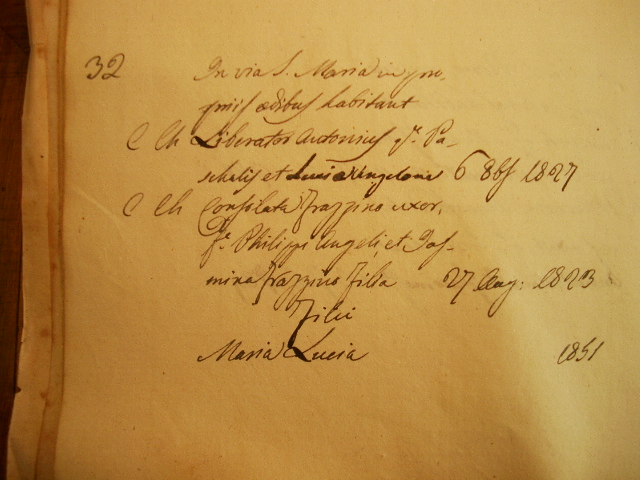 32 In via S. Maria in pro-
priis ædibus habitant
C Ch Liberator Antonius q.m Pa-
schalis et Lucia Angelone 6 8bs 1827
C Ch Consolata Frazzino uxor,
q.m Philippi Angeli, et Gas-
mina Frazzino filia 27 Aug: 1823
Filii
Maria Lucia 1851